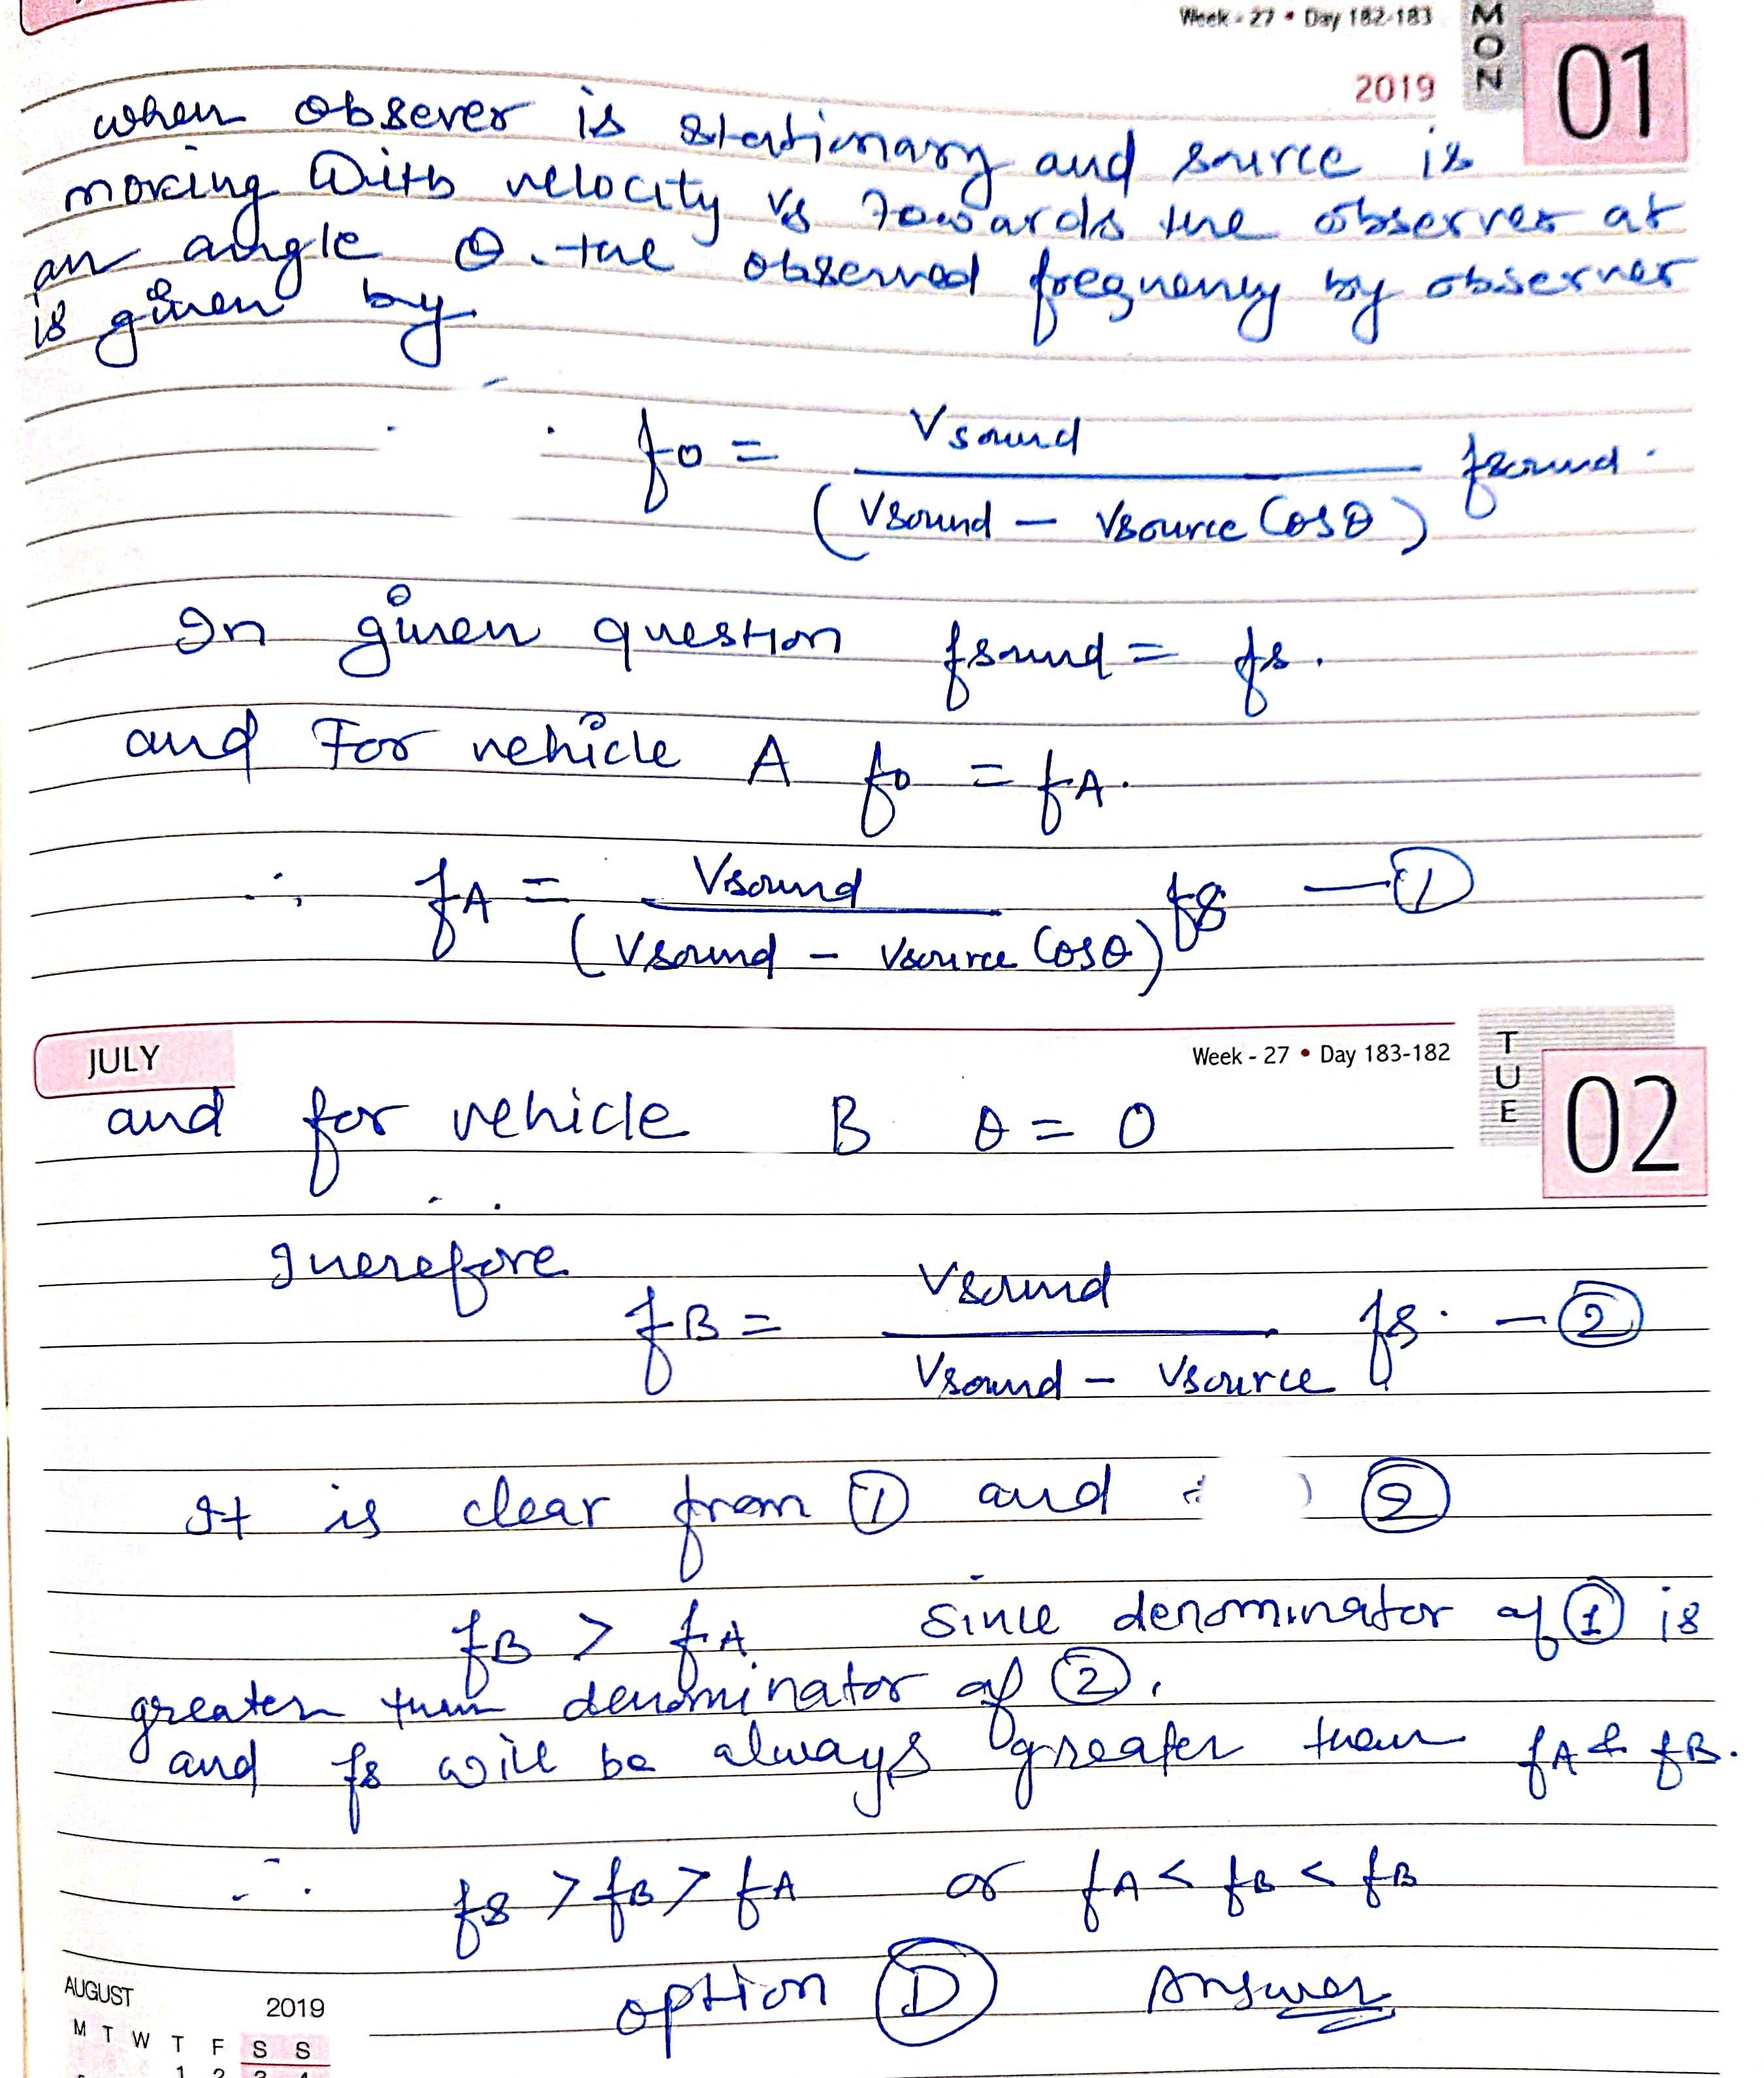 Week - 27 • Day 182-183
MON
01
2019
when obsever is stationary and source is
moving with velocity vs Towards the observer at
an angle θ. the observed frequency by observer
is given by
fo = Vsound / (Vsound - Vsource Cosθ) fsound.
In given question fsound = fs.
and For vehicle A fo = fA.
∴ fA = Vsound / (Vsound - Vsource Cosθ) fs — ①
JULY
Week - 27 • Day 183-182
TUE
02
and for vehicle B θ = 0
Therefore
fB = Vsound / Vsound - Vsource fs. - ②
It is clear from ① and ②
fB > fA Since denominator of ① is
greater than denominator of ②.
and fs will be always greater than fA & fB.
∴ fs > fB > fA or fA < fB < fB
option D Answer
AUGUST 2019
M T W T F S S
1 2 3 4